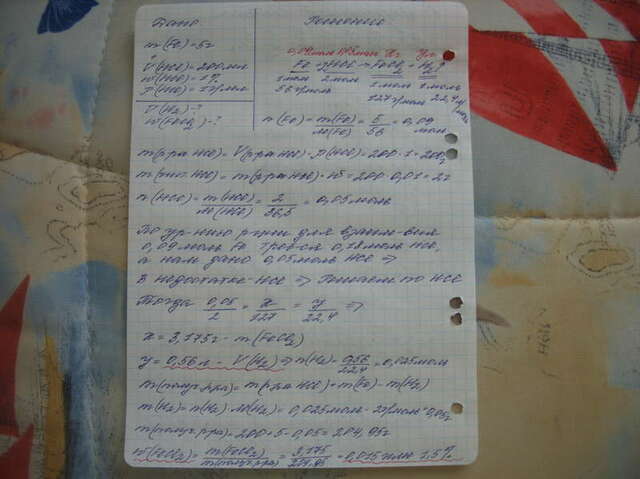 Дано Решение
m(Fe)=5г
V(HCl)=200мл
w(HCl)=1%
ρ(HCl)=1г/мл
V(H₂)-?
w(FeCl₂)-?
0,09моль 0,05моль xг yл
Fe+2HCl→FeCl₂+H₂↑
1моль 2моль 1моль 1моль
56г/моль 127г/моль 22,4
n(Fe)=m(Fe)/M(Fe)=5/56=0,09 моль
m(р-ра HCl)=V(р-ра HCl)·ρ(HCl)=200·1=200г
m(HCl)=m(р-ра HCl)·w=200·0,01=2г
n(HCl)=m(HCl)/M(HCl)=2/36,5=0,05моль
По ур-нию р-ции для взаим-вия
0,09моль Fe треб-ся 0,18моль HCl,
а нам дано 0,05моль HCl ⇒
В недостатке-HCl ⇒ Решаем по HCl
Тогда 0,05/2=x/127=y/22,4 ⇒
x=3,175г-m(FeCl₂)
y=0,56л-V(H₂)⇒n(H₂)=0,56/22,4=0,025моль
m(получ.р-ра)=m р-ра HCl+m(Fe)-m(H₂)
m(H₂)=n(H₂)·M(H₂)=0,025моль·2г/моль=0,05г
m(получ.р-ра)=200+5-0,05=204,95г
w(FeCl₂)=m(FeCl₂)/m(получ.р-ра)=3,175/204,95=0,015 или 1,5%